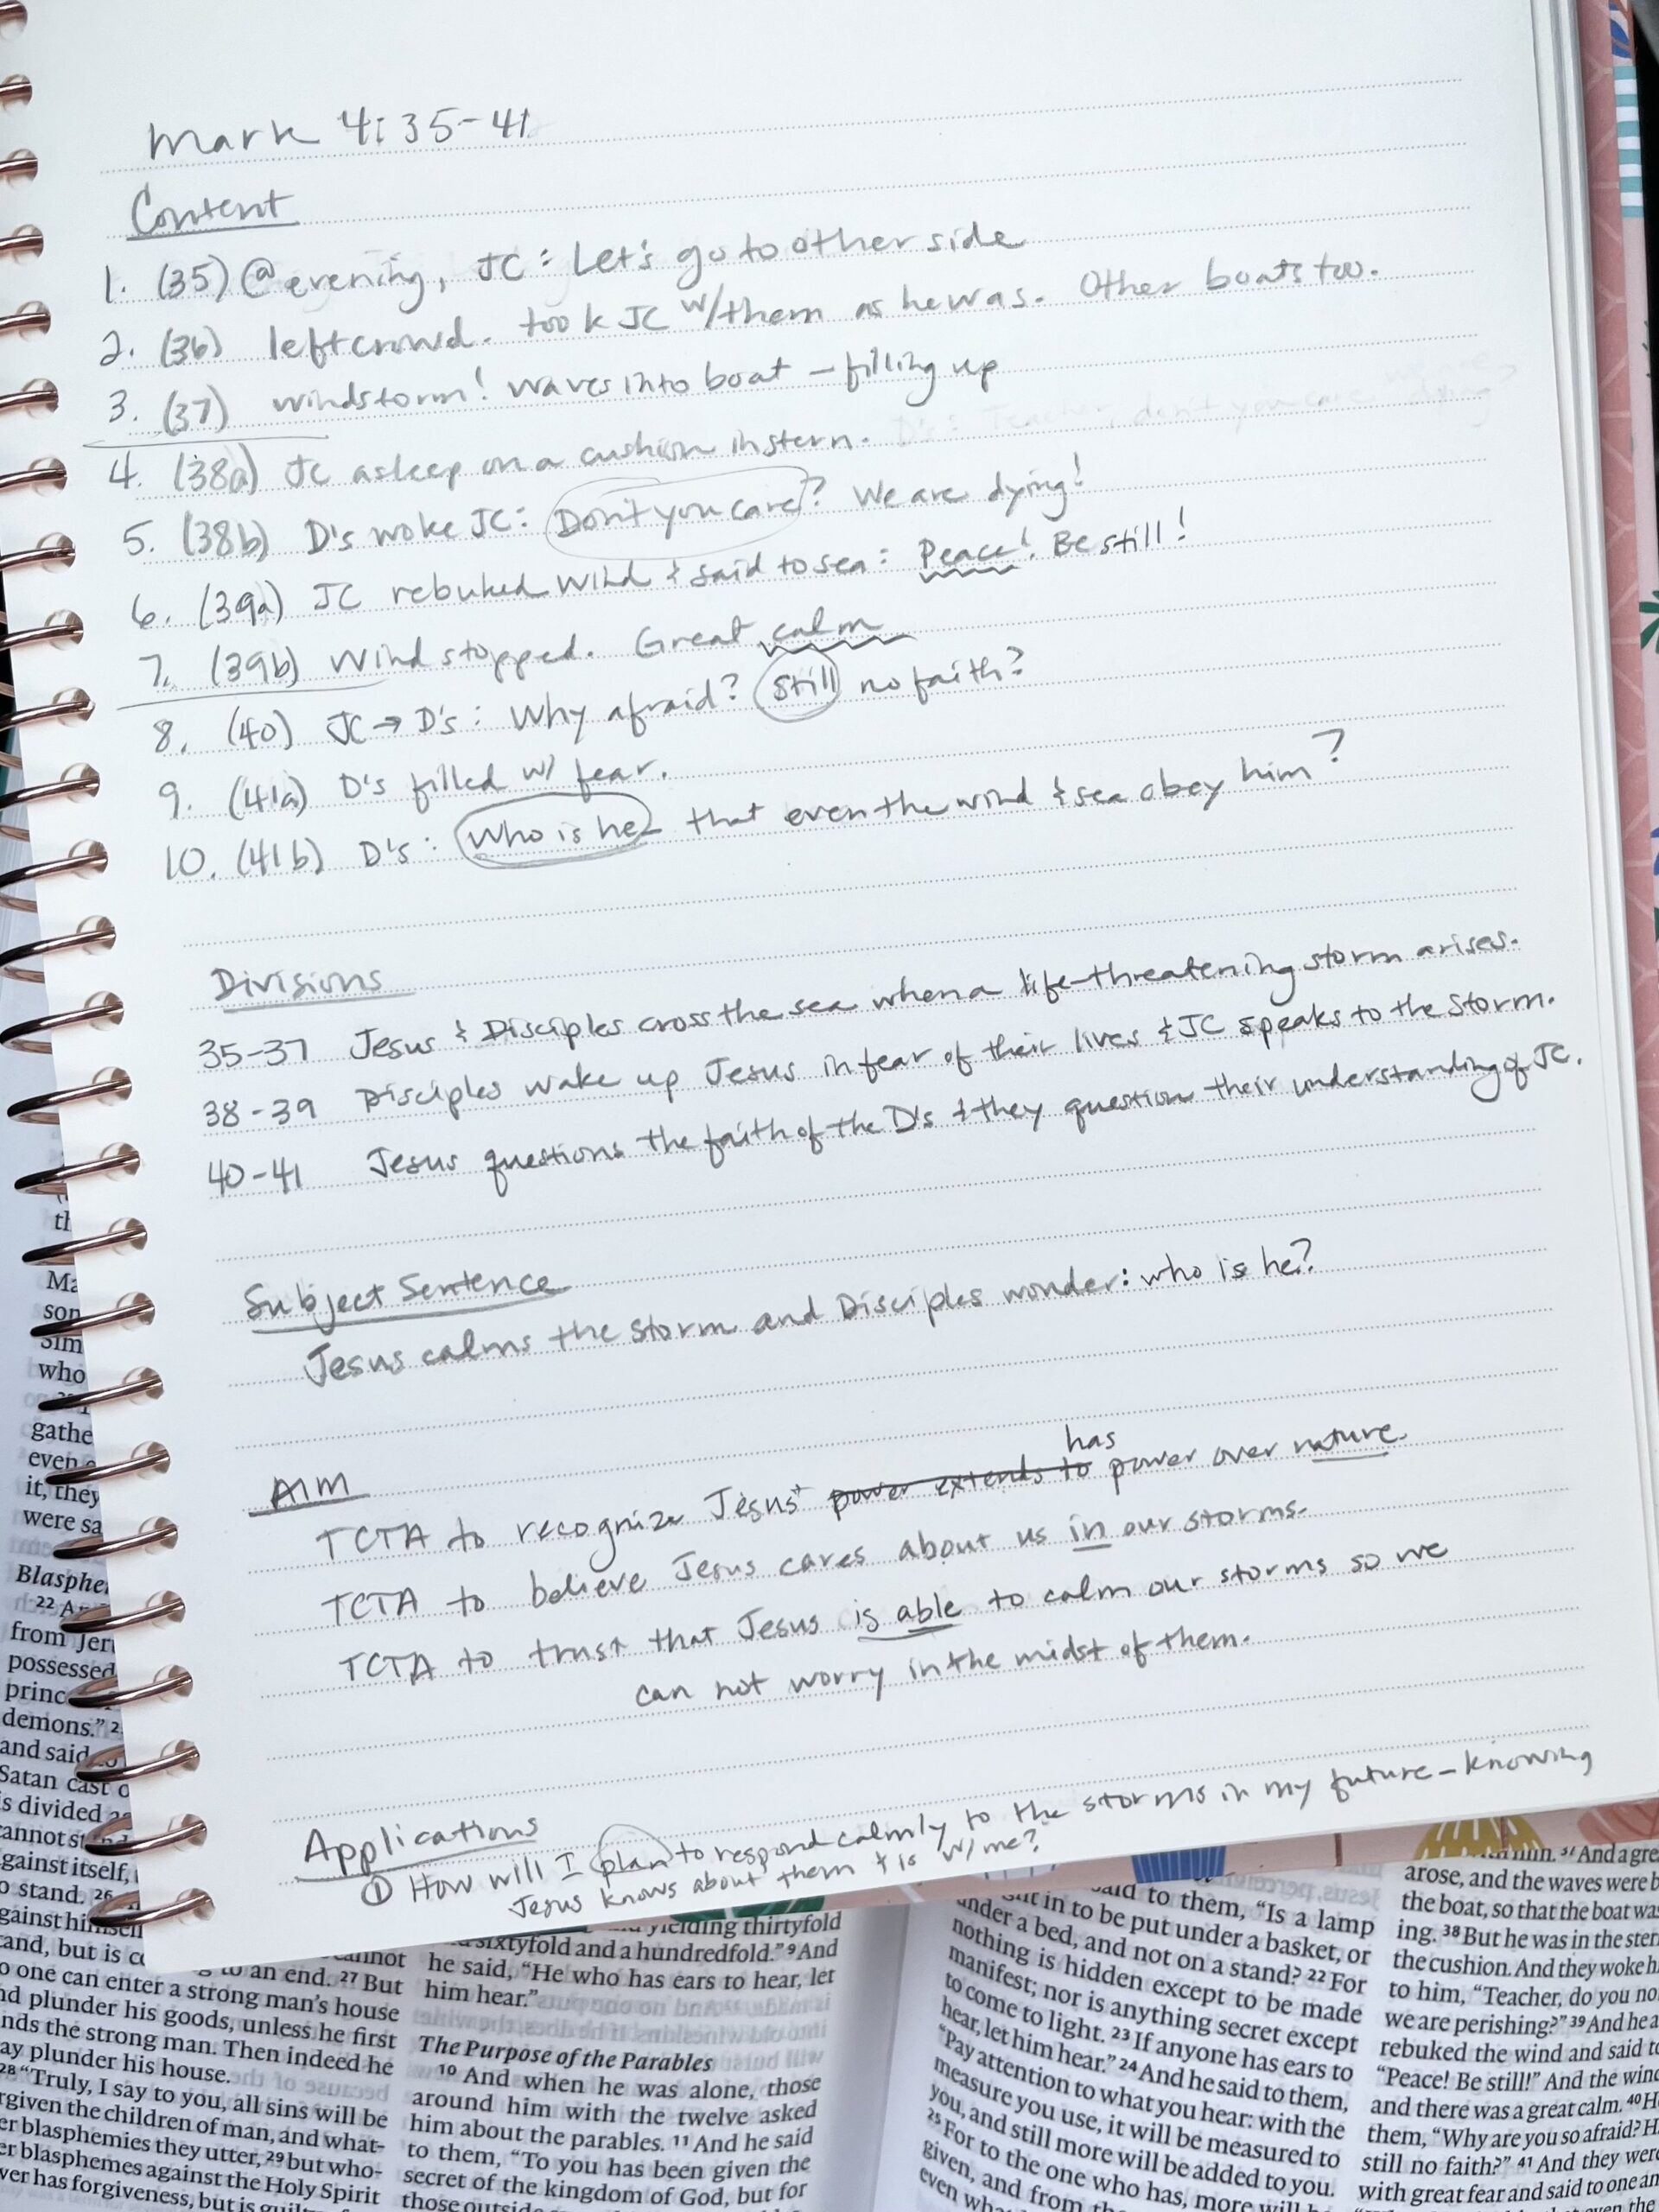 Mark 4:35-41
Content
1. (35) @ evening, JC: Let's go to other side
2. (36) left crowd. took JC w/them as he was. Other boats too.
3. (37) windstorm! waves into boat - filling up
4. (38a) JC asleep on a cushion in stern. D's: Teacher, don't you care dying?
5. (38b) D's woke JC: Don't you care? We are dying!
6. (39a) JC rebuked wind & said to sea: Peace! Be still!
7. (39b) Wind stopped. Great calm
8. (40) JC → D's: Why afraid? Still no faith?
9. (41a) D's filled w/ fear.
10. (41b) D's: Who is he that even the wind & sea obey him?
Divisions
35-37 Jesus & Disciples cross the sea when a life-threatening storm arises.
38-39 Disciples wake up Jesus in fear of their lives & JC speaks to the storm.
40-41 Jesus questions the faith of the D's & they question their understanding of JC.
Subject Sentence
Jesus calms the storm and Disciples wonder: who is he?
AIM
has
TCTA to recognize Jesus' power extends to power over nature.
TCTA to believe Jesus cares about us in our storms.
TCTA to trust that Jesus is able to calm our storms so we
can not worry in the midst of them.
Applications
① How will I plan to respond calmly to the storms in my future - knowing
Jesus knows about them & is w/me?
th
Ma
son
Sim
who
gathe
even
it, they
were sa
Blasphe
22 A
from Jer
possessed
princ
demons." 2
and said
Satan cast o
is divided
cannot st
gainst itself,
o stand. 26
gainst himself
and, but is c to an end. 27 But
o one can enter a strong man's house
nd plunder his goods, unless he first
nds the strong man. Then indeed he
ay plunder his house.
28 "Truly, I say to you, all sins will be
rgiven the children of man, and what-
er blasphemies they utter, 29 but who-
er blasphemes against the Holy Spirit
ver has forgiveness, but is
yielding thirtyfold
sixtyfold and a hundredfold." 9 And
he said, "He who has ears to hear, let
him hear."
The Purpose of the Parables
10 And when he was alone, those
around him with the twelve asked
him about the parables. 11 And he said
to them, "To you has been given the
secret of the kingdom of God, but for
those outside
said to them, "Is a lamp
in to be put under a basket, or
under a bed, and not on a stand? 22 For
nothing is hidden except to be made
manifest; nor is anything secret except
to come to light. 23 If anyone has ears to
hear, let him hear." 24 And he said to them,
"Pay attention to what you hear: with the
measure you use, it will be measured to
you, and still more will be added to you.
25 For to the one who has, more will
given, and from
even
him. 37 And a gre
arose, and the waves were b
the boat, so that the boat wa
ing. 38 But he was in the ster
the cushion. And they woke h
to him, "Teacher, do you no
we are perishing?" 39 And he a
rebuked the wind and said t
"Peace! Be still!" And the wind
and there was a great calm. 40 H
them, "Why are you so afraid? H
still no faith?" 41 And they wer
with great fear and said to one an
even the